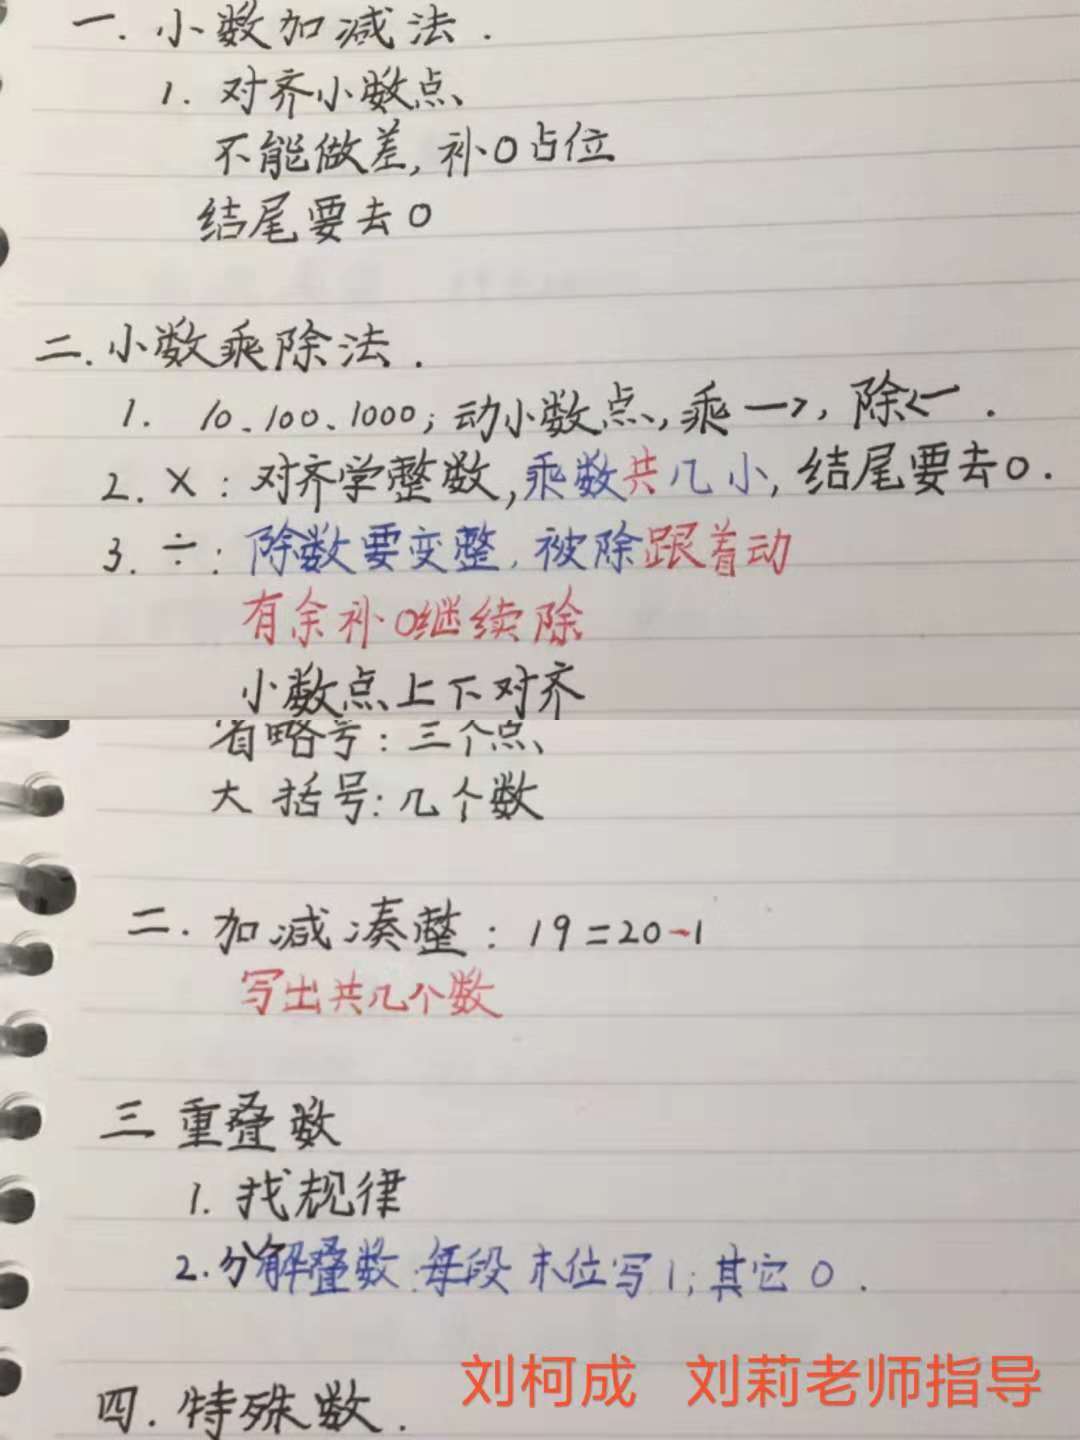 一. 小数加减法.
1. 对齐小数点、
不能做差, 补0占位
结尾要去0
二. 小数乘除法.
1. 10、100、1000; 动小数点, 乘→, 除←.
2. ×: 对齐学整数, 乘数共几小, 结尾要去0.
3. ÷: 除数要变整, 被除跟着动
有余补0继续除
小数点上下对齐
省略号: 三个点、
大括号: 几个数
二. 加减凑整: 19=20-1
写出共几个数
三 重叠数
1. 找规律
2. 分解叠数: 每段末位写1; 其它0.
四. 特殊数.
刘柯成 刘莉老师指导